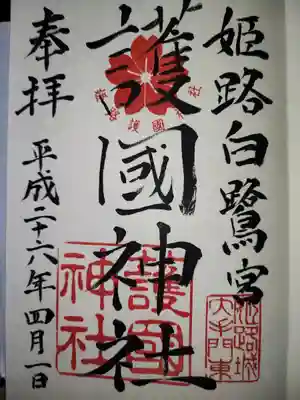 姫路白鷺宮
護國神社
奉拝
平成二十六年四月一日
護國
神社
姫路城
大手門東